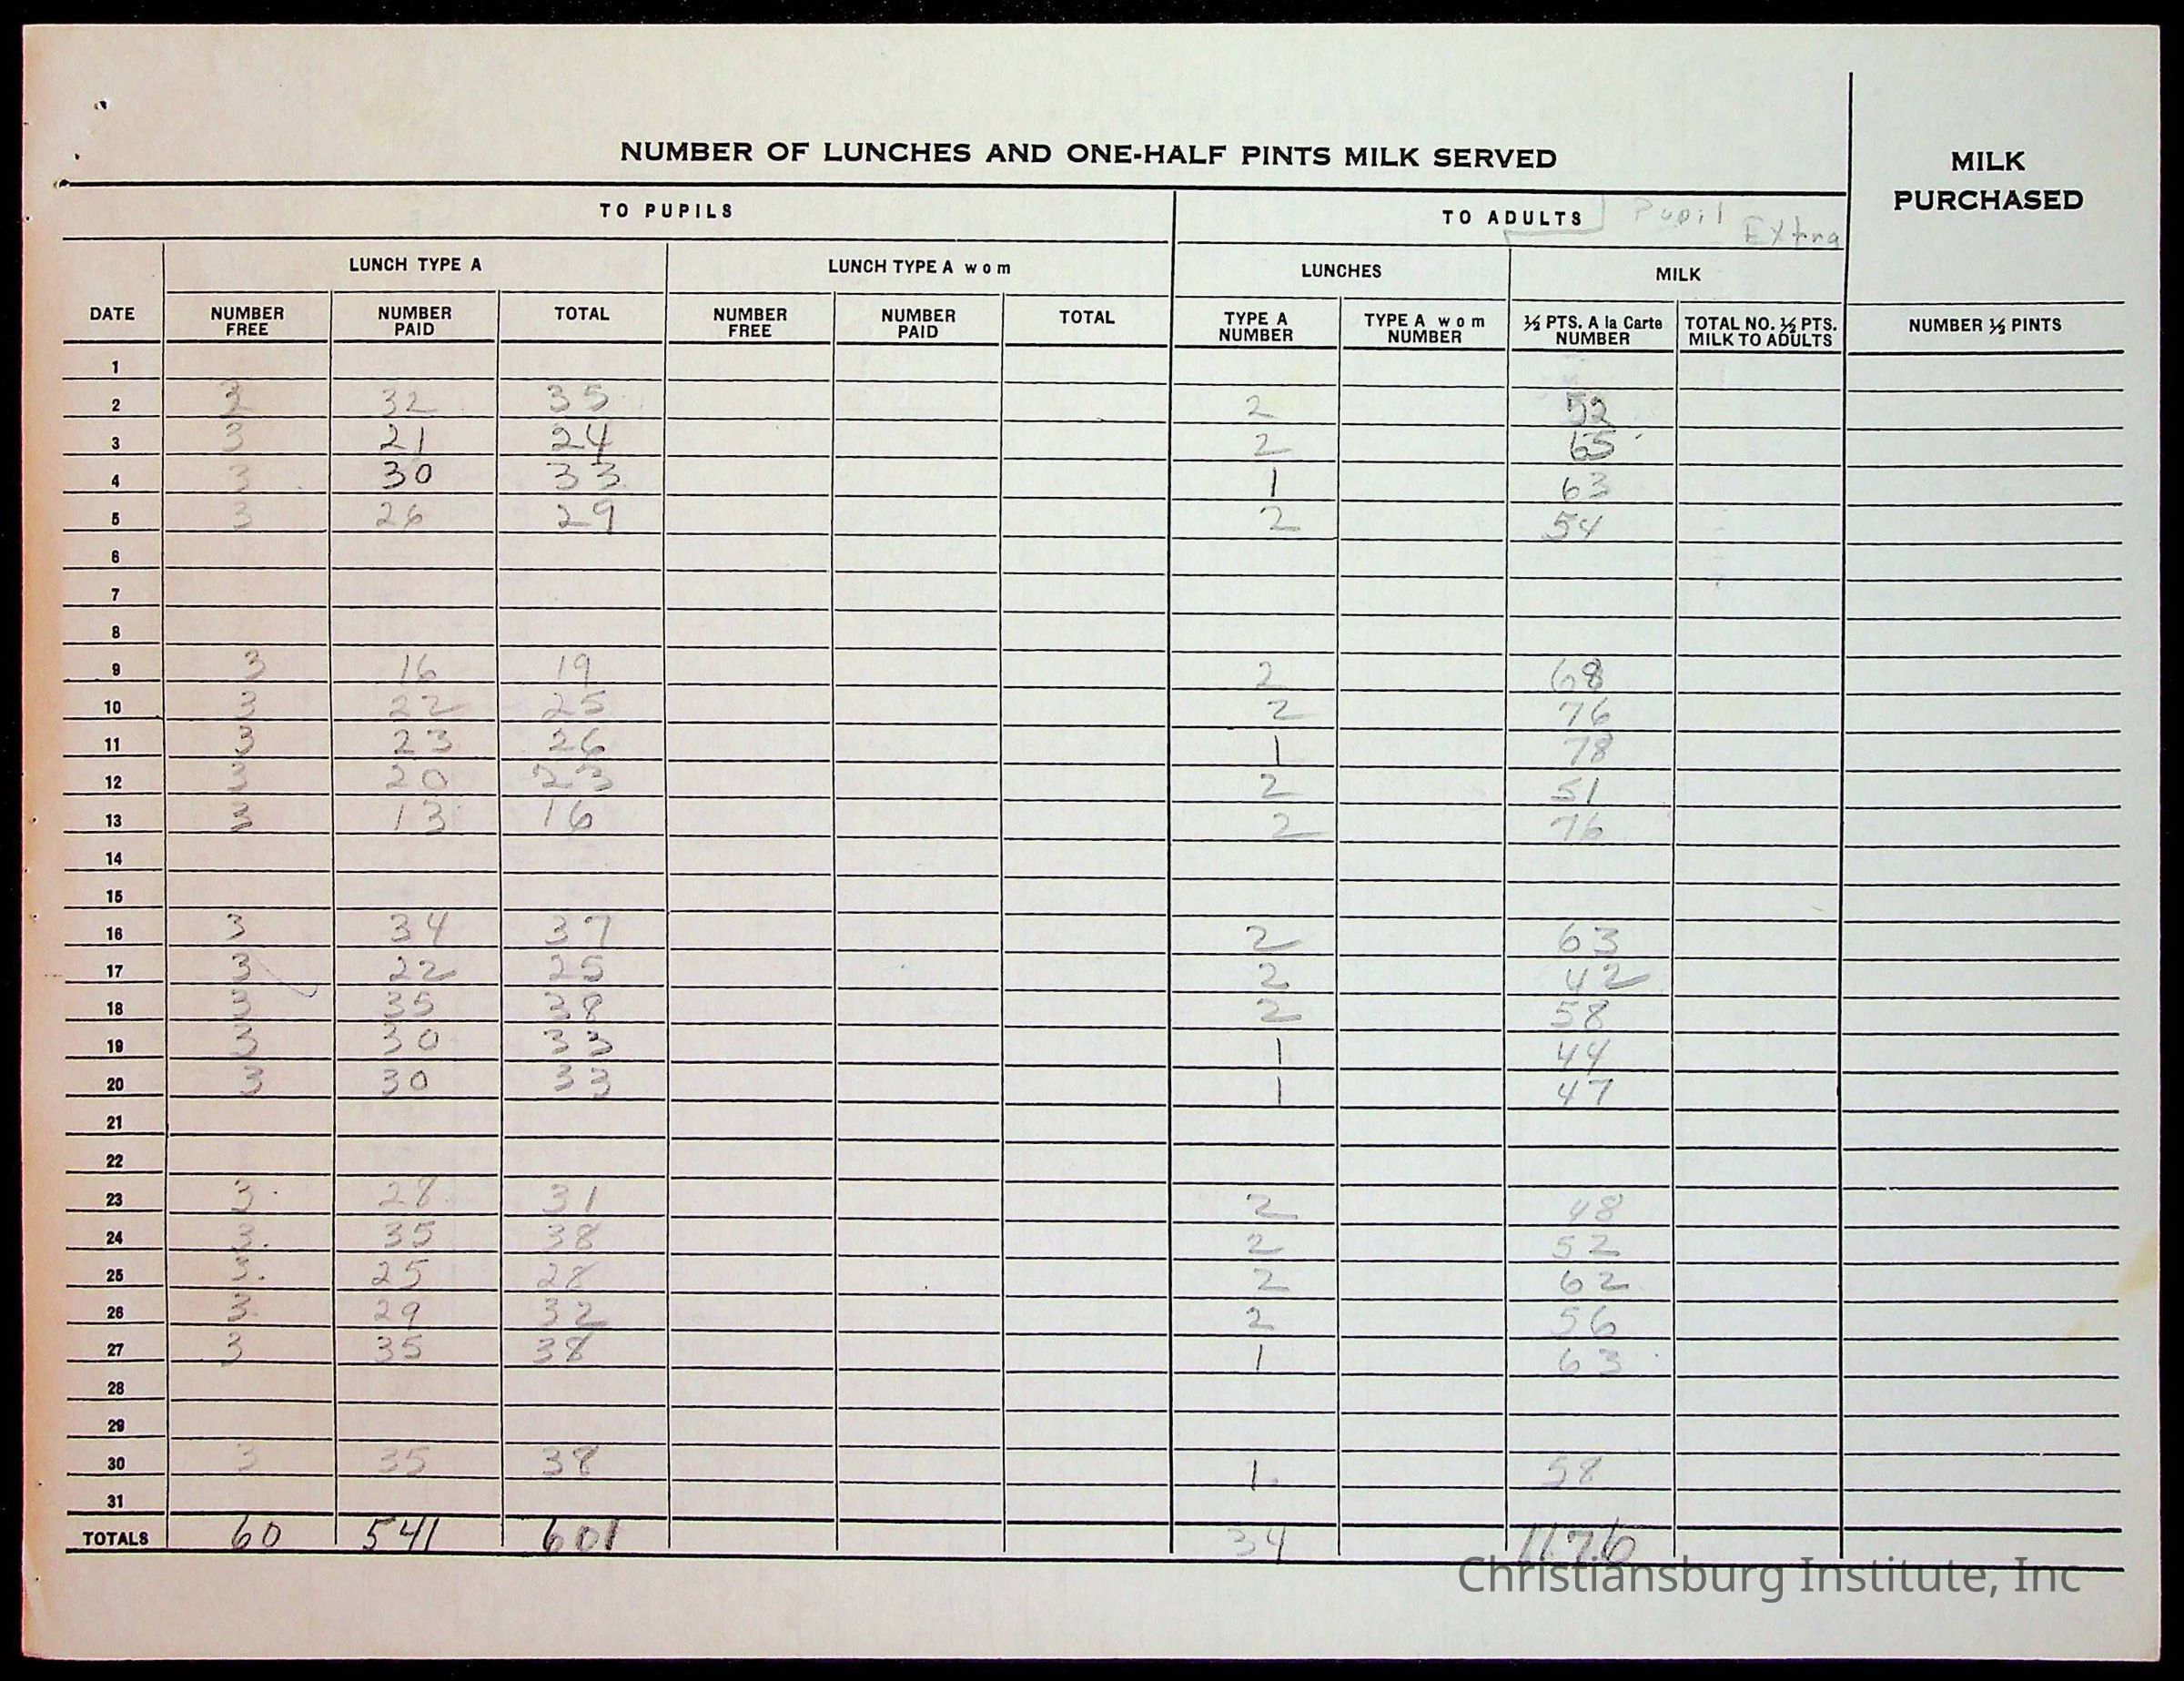 NUMBER OF LUNCHES AND ONE-HALF PINTS MILK SERVED
MILK PURCHASED
TO PUPILS TO ADULTS Pupil Extra
LUNCH TYPE A LUNCH TYPE A w o m LUNCHES MILK
DATE NUMBER FREE NUMBER PAID TOTAL NUMBER FREE NUMBER PAID TOTAL TYPE A NUMBER TYPE A w o m NUMBER ½ PTS. A la Carte NUMBER TOTAL NO. ½ PTS. MILK TO ADULTS NUMBER ½ PINTS
1
2 3 32 35 2 52
3 3 21 24 2 65
4 3 30 33 1 63
5 3 26 29 2 54
6
7
8
9 3 16 19 2 68
10 3 22 25 2 76
11 3 23 26 1 78
12 3 20 23 2 51
13 3 13 16 2 76
14
15
16 3 34 37 2 63
17 3 22 25 2 42
18 3 35 38 2 58
19 3 30 33 1 44
20 3 30 33 1 47
21
22
23 3 28 31 2 48
24 3 35 38 2 52
25 3 25 28 2 62
26 3 29 32 2 56
27 3 35 38 1 63
28
29
30 3 35 38 1 58
31
TOTALS 60 541 601 34 1176
Christiansburg Institute, Inc